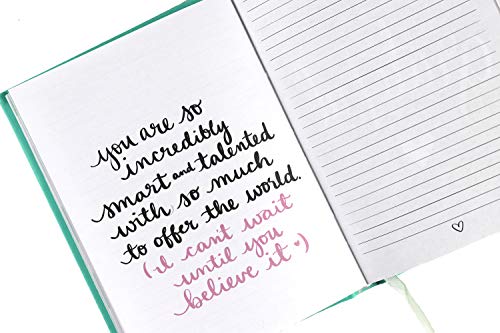 you are so
incredibly
smart and talented
with so much
to offer the world.
(I can't wait
until you
believe it ♥)